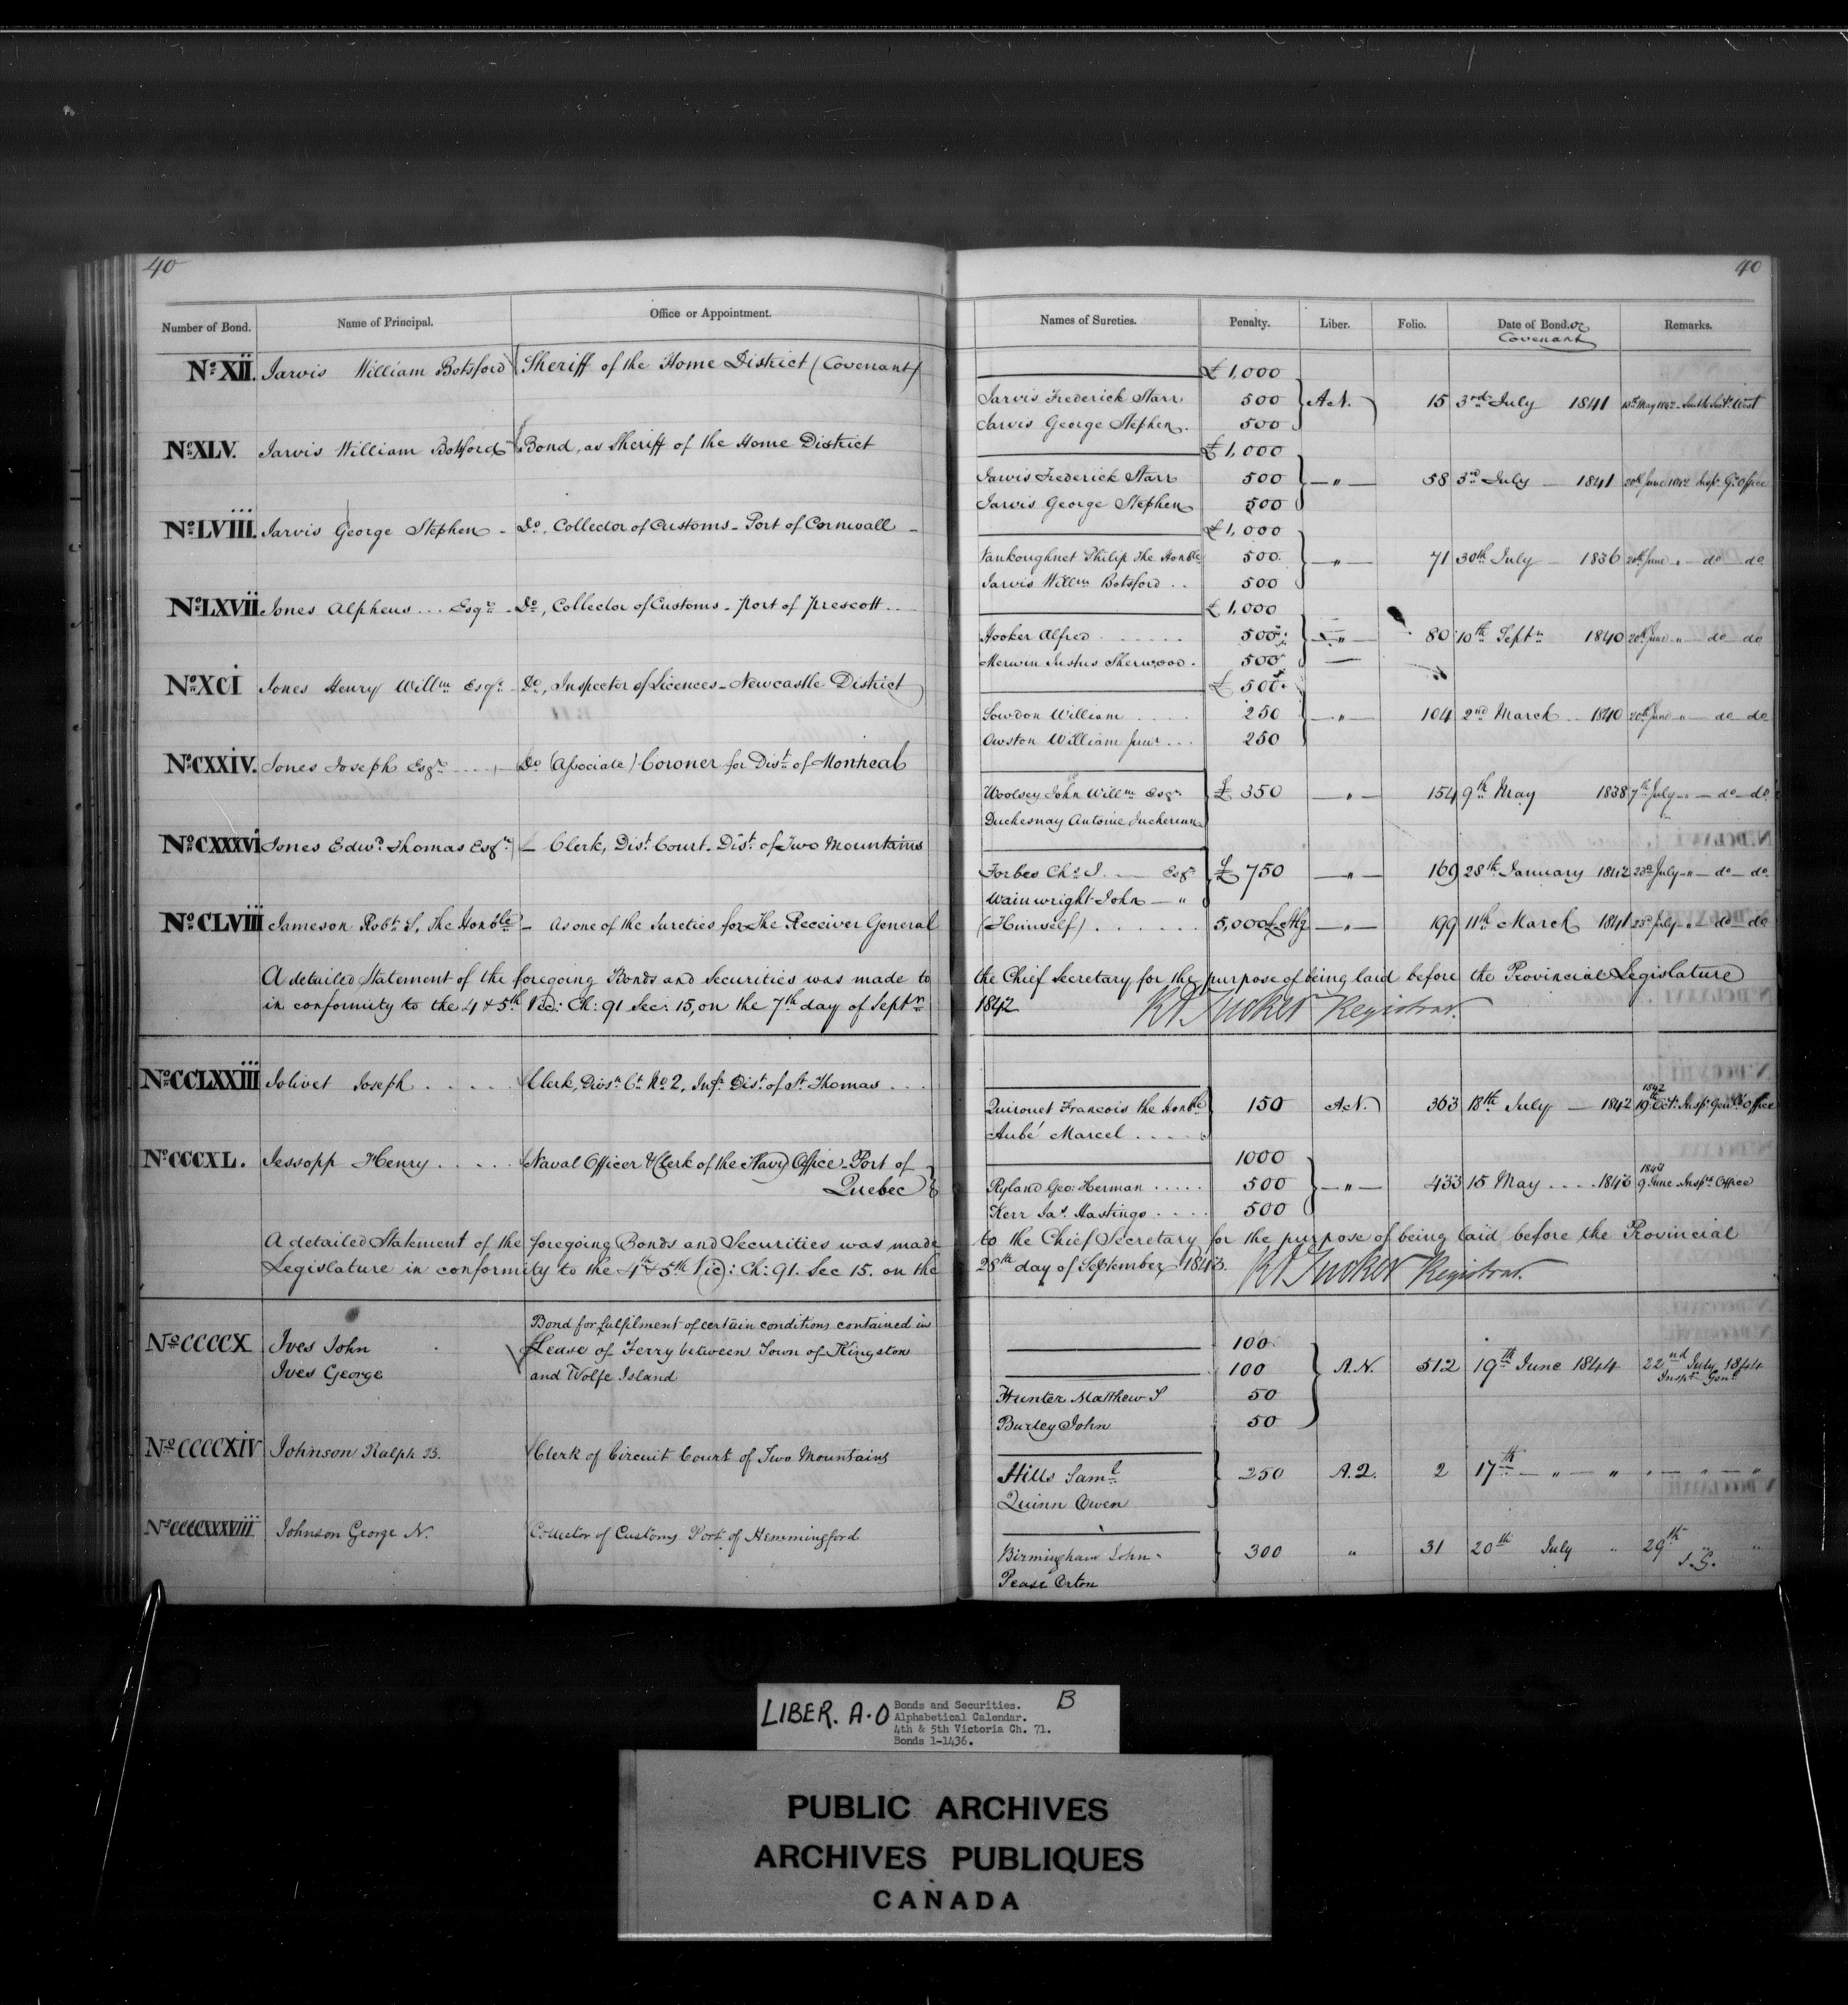 40
40
Number of Bond. Name of Principal. Office or Appointment. Names of Sureties. Penalty. Liber. Folio. Date of Bond. or Remarks.
Covenant
No. XII. Jarvis William Botsford Sheriff of the Home District (Covenant) £1,000
Jarvis Frederick Starr 500 A.N. 15 3rd July 1841 13th May 1842
Jarvis George Stephen. 500
No. XLV. Jarvis William Botsford Bond, as Sheriff of the Home District £1,000
Jarvis Frederick Starr 500 — " — 58 3rd July — 1841 20th June 1842 Inspr. Gl. Office
Jarvis George Stephen 500
No. LVIII. Jarvis George Stephen - Do, Collector of Customs - Port of Cornwall - £1,000
Vankoughnet Philip the Honble 500 — " — 71 30th July — 1836 20th June " — do do
Jarvis Willm Botsford . . 500
No. LXVII Jones Alpheus . . . Esqre - Do, Collector of Customs - Port of Prescott . . £1,000
Hooker Alfred . . . . . . 500 — " — 80 10th Septr 1840 20th June " — do do
Merwin Justus Sherwood . 500
No. XCI Jones Henry Willm Esqr - Do, Inspector of Licences - Newcastle District £500
Sowdon William . . . . . 250 — " — 104 2nd March . . 1840 20th June " — do do
Owston William Junr . . . 250
No. CXXIV. Jones Joseph Esqr Do (Associate) Coroner for Dist. of Montreal
Woolsey John Willm Esqr £350 — " — 154 9th May 1838 7th July " — do — do
Duchesnay Antoine Juchereau
No. CXXXVI Jones Edwd Thomas Esqr — Clerk, Dist. Court - Dist. of Two Mountains
Forbes Chs J. — Esqr £750 — " — 169 28th January 1842 23rd July " — do — do
Wainwright John — "
No. CLVIII Jameson Robt S, the Honble — As one of the Sureties for The Receiver General (Himself) . . . . . . 5,000£ Stg — " — 199 11th March 1841 23rd July " — do — do
A detailed Statement of the foregoing Bonds and Securities was made to the Chief Secretary for the purpose of being laid before the Provincial Legislature
in conformity to the 4 & 5th Vic: Ch: 91 Sec: 15, on the 7th day of Septr 1842 RA Tucker Registrar.
No. CCLXXIII Jolivet Joseph . . . . . Clerk, Divn. Ct. No 2, Infr. Dist. of St. Thomas . . .
1842
Quirouet Francois the honble 150 A.N. 363 18th July — 1842 19th Oct. Inspr Genl's Office
Aubé Marcel . . . .
No. CCCXL. Jessopp Henry . . . . . Naval Officer & Clerk of the Navy Office - Port of 1000
Quebec
1843
Ryland Geo: Herman . . . . . 500 — " — 433 15 May . . . . 1843 9 June Inspr. Office
Kerr Jas. Hastings . . . . 500
A detailed Statement of the foregoing Bonds and Securities was made to the Chief Secretary for the purpose of being laid before the Provincial
Legislature in conformity to the 4th & 5th Vic: Ch: 91. Sec 15. on the 28th day of September 1843. RA Tucker Registrar.
Bond for fulfilment of certain conditions contained in
No. CCCCX Ives John Lease of Ferry between Town of Kingston 100
Ives George and Wolfe Island 100 A.N. 512 19th June 1844 22nd July 1844
Inspr. Genl
Hunter Matthew S 50
Burley John 50
No. CCCCXIV Johnson Ralph B. Clerk of Circuit Court of Two Mountains
Hills Saml 250 A.Q. 2 17th — " — " " — " — "
Quinn Owen
No. CCCCXXXVIII Johnson George N. Collector of Customs Port of Hemmingford
Birmingham John 300 " 31 20th July " 29th " "
I.G.
Pease Orton
LIBER. A.O
Bonds and Securities. B
Alphabetical Calendar.
4th & 5th Victoria Ch. 71.
Bonds 1-1436.
PUBLIC ARCHIVES
ARCHIVES PUBLIQUES
CANADA